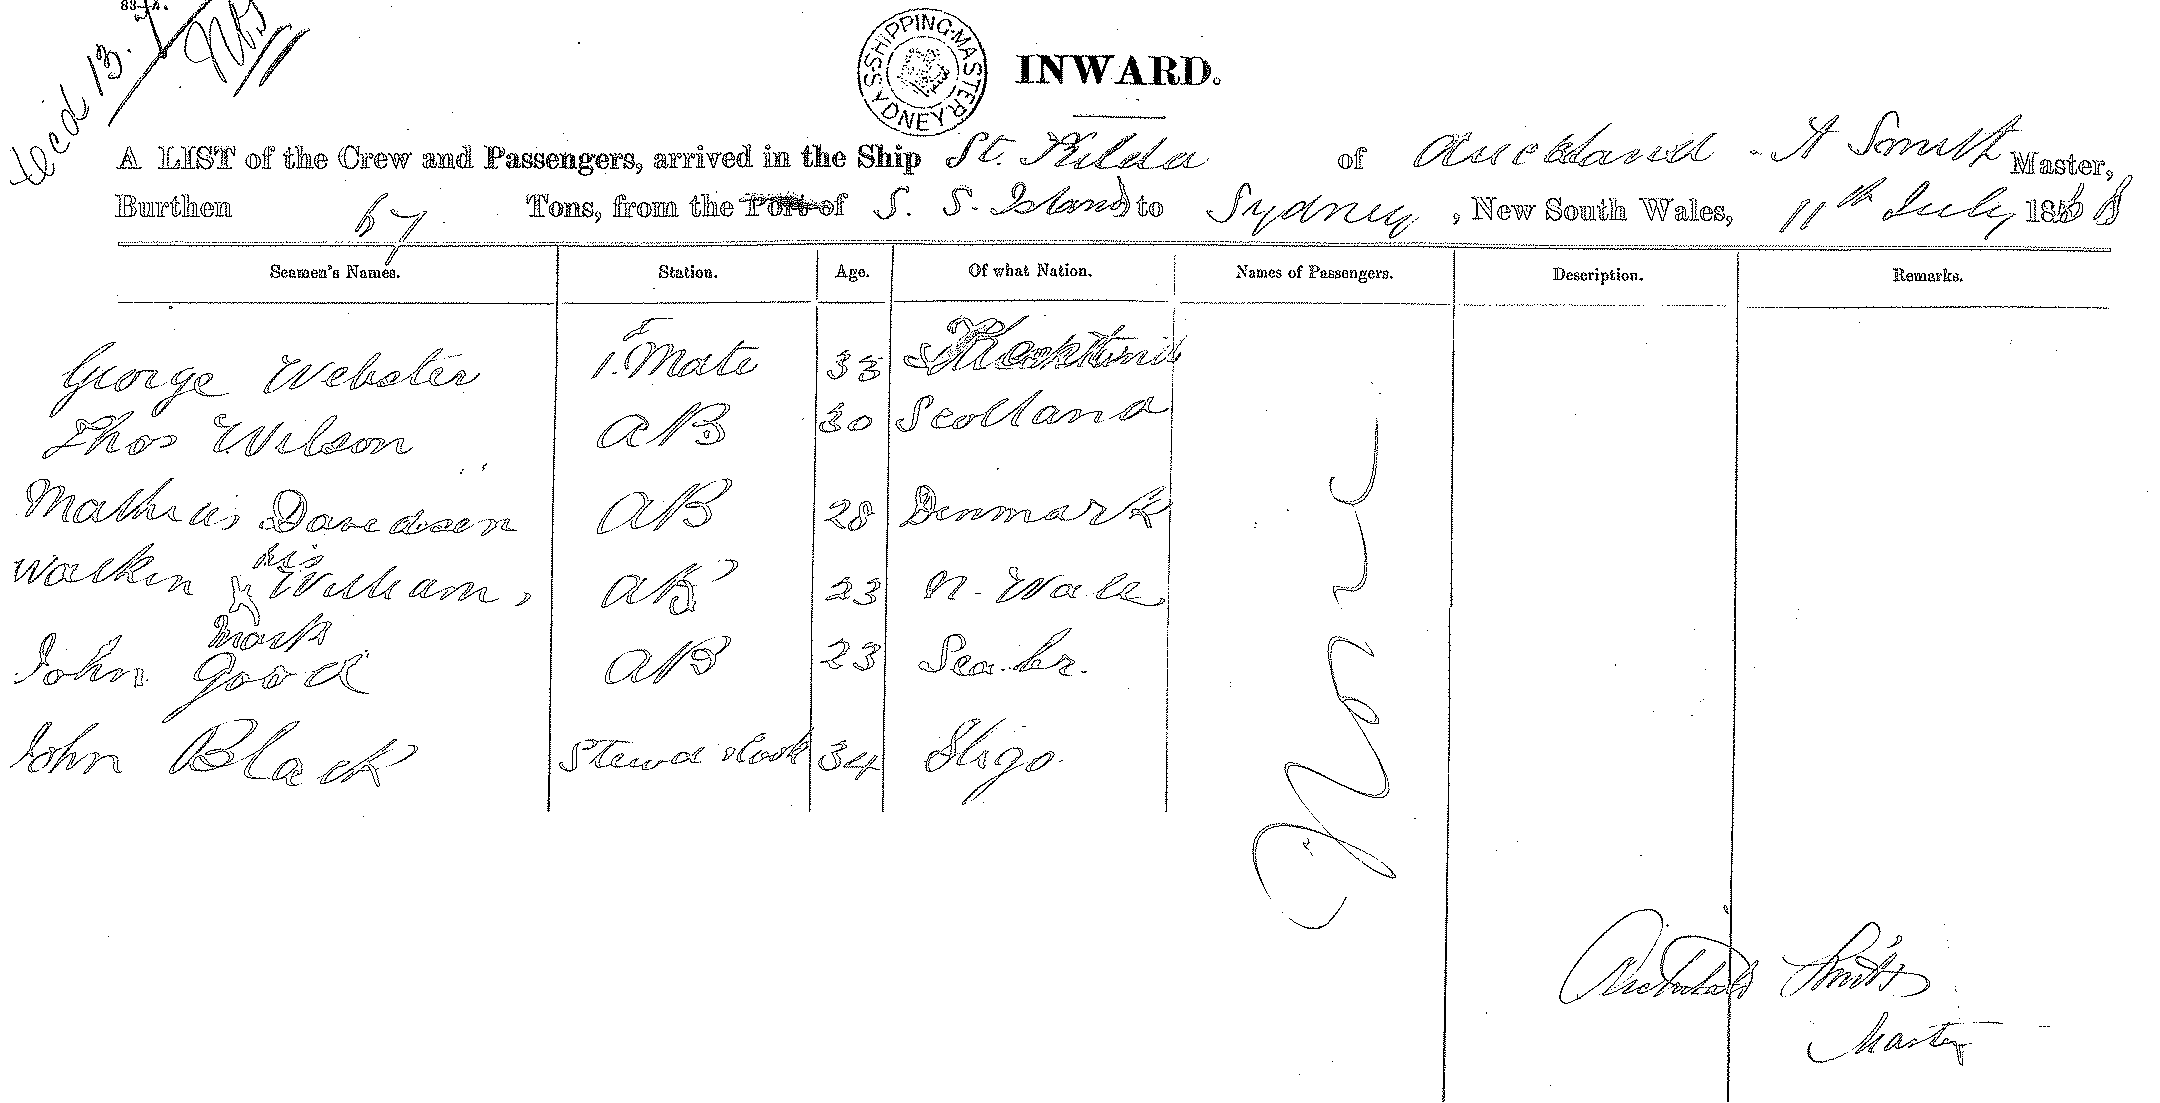 83-4.
13.
SHIPPING MASTER SYDNEY
INWARD.
A LIST of the Crew and Passengers, arrived in the Ship St. Kilda of Auckland - A Smith Master,
Burthen 67 Tons, from the Port of S. S. Island to Sydney, New South Wales, 11th July 186
Seamen's Names. Station. Age. Of what Nation. Names of Passengers. Description. Remarks.
George Webster 1. Mate 33
Thos Wilson AB 30 Scotland
Mathias Davedsen AB 28 Denmark
his
Watkin x William, AB 23 N. Wales
mark
John Good AB 23 Sea.br.
John Black Stewd & Cook 34 Sligo.
None
Archibald Smith
Master